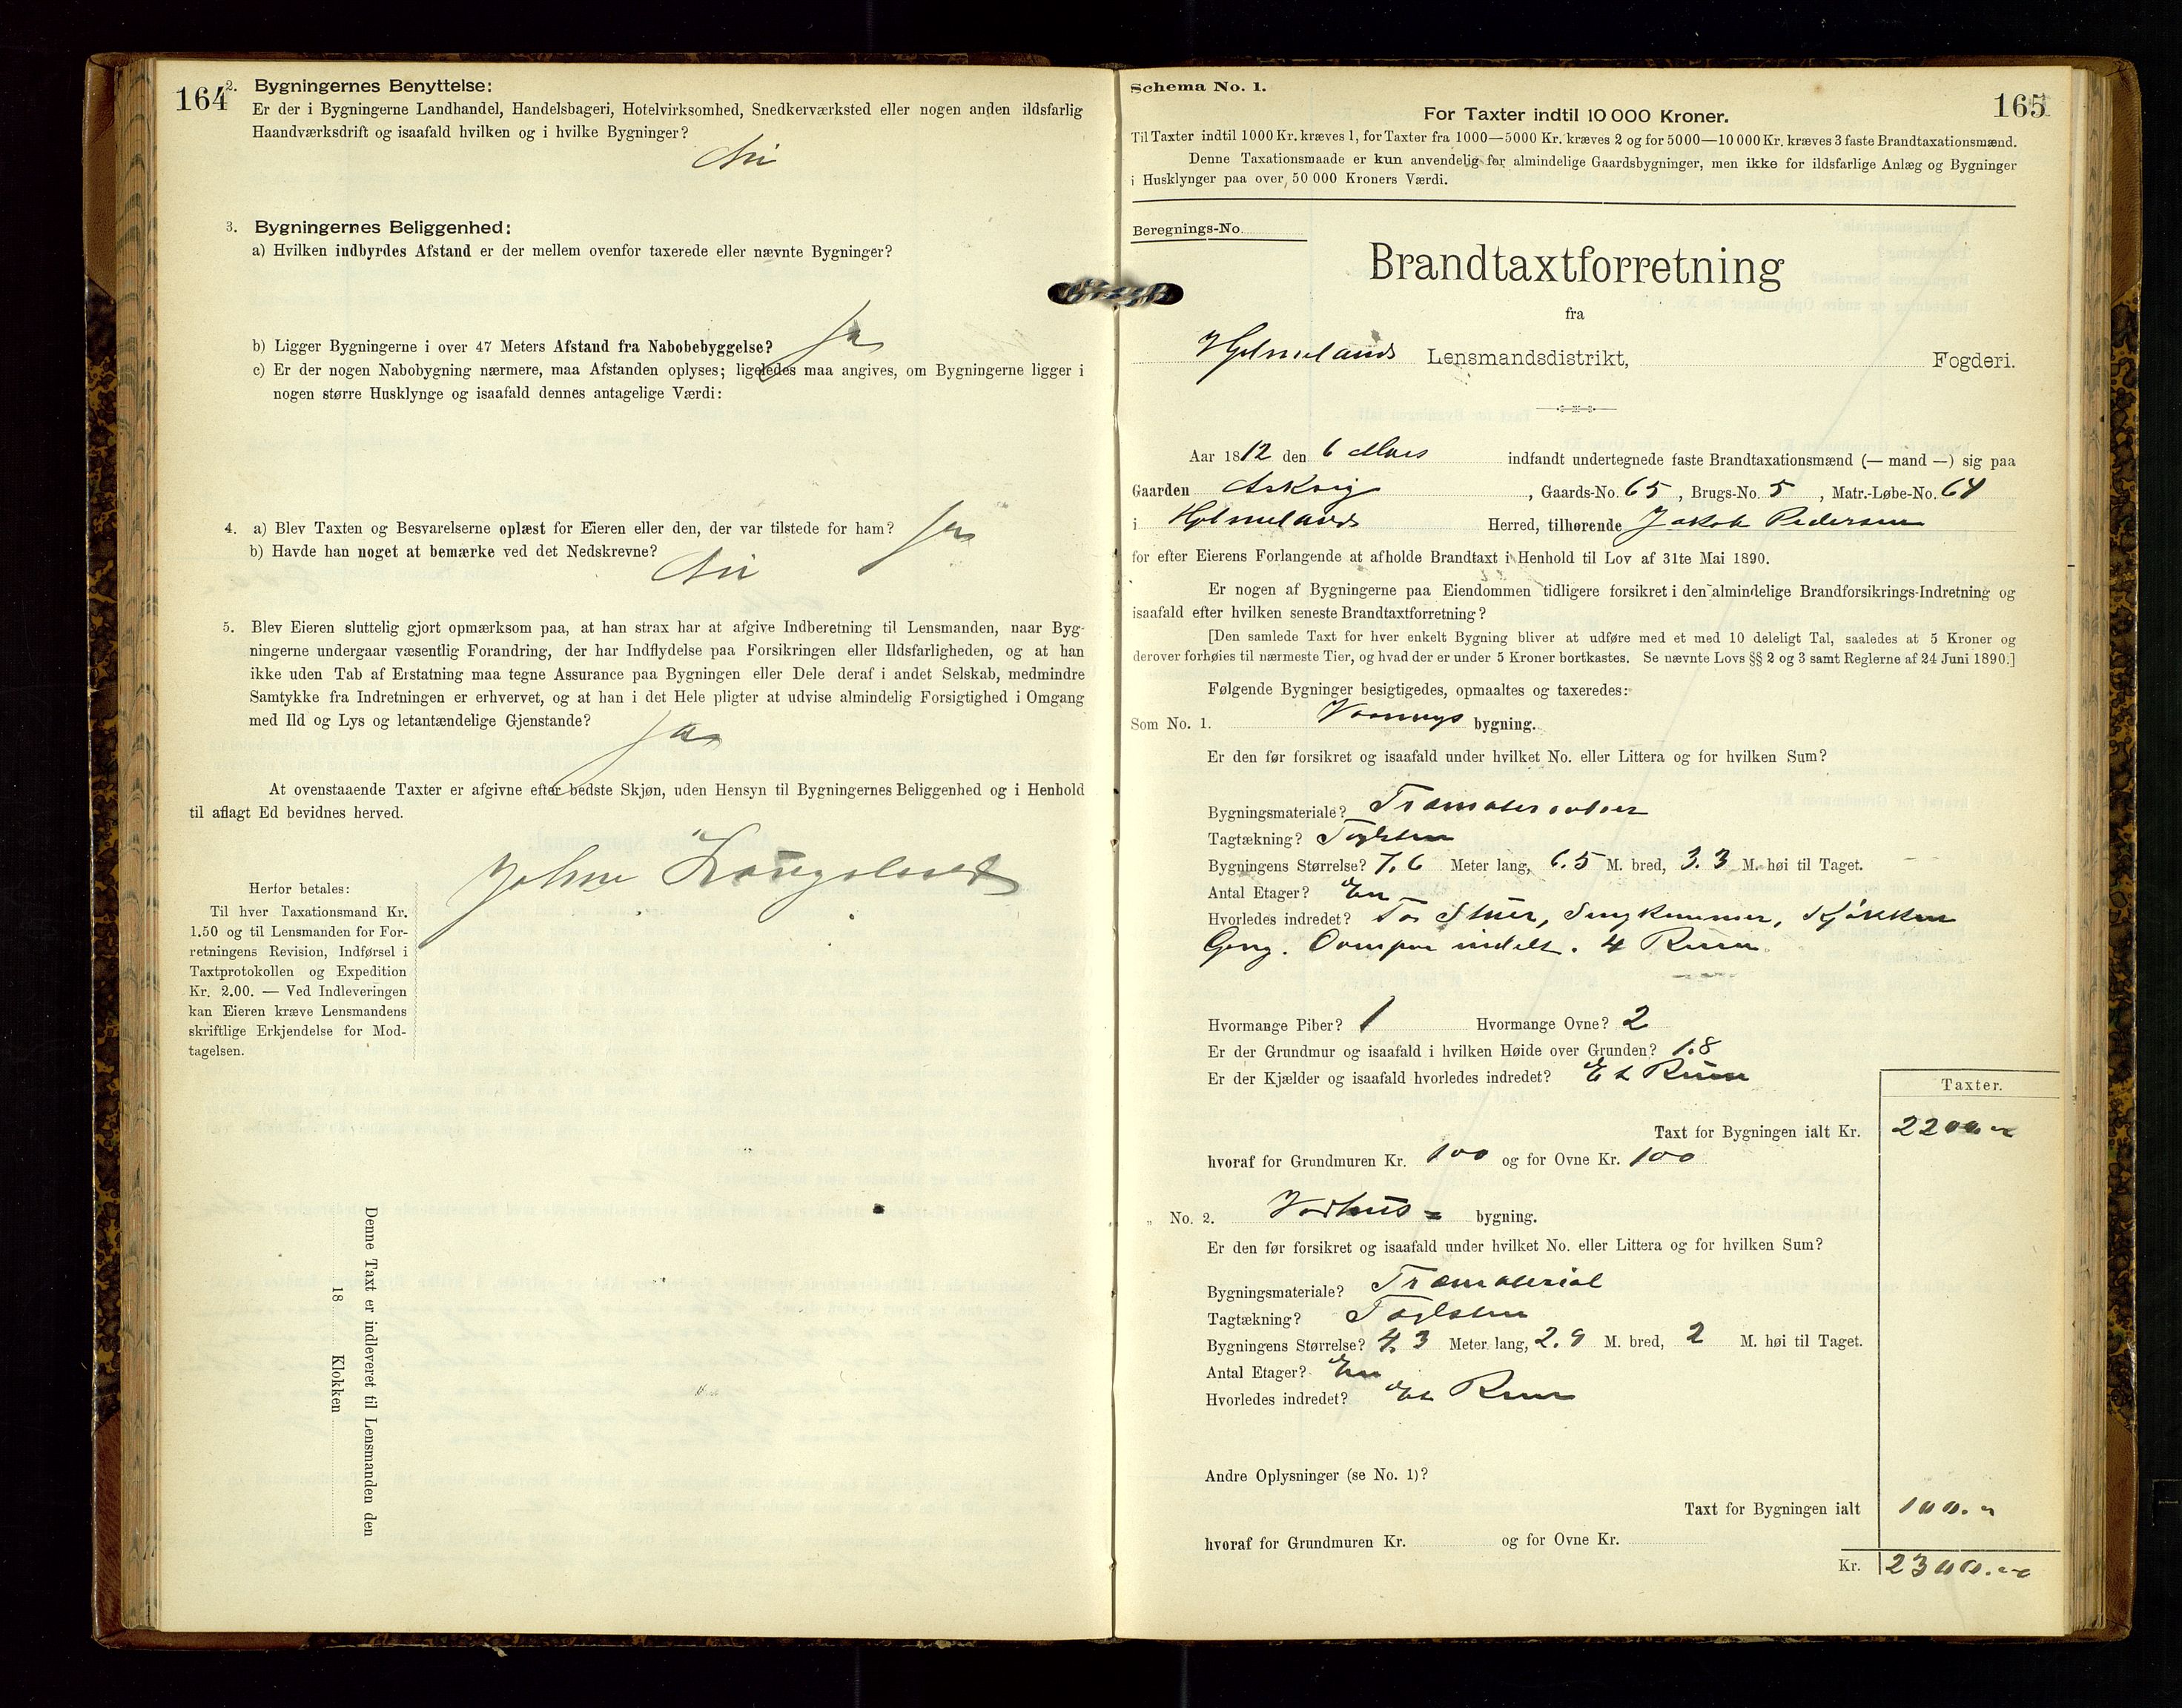 164
2. Bygningernes Benyttelse:
Er der i Bygningerne Landhandel, Handelsbageri, Hotelvirksomhed, Snedkerværksted eller nogen anden ildsfarlig
Haandværksdrift og isaafald hvilken og i hvilke Bygninger?
Nei
3. Bygningernes Beliggenhed:
a) Hvilken indbyrdes Afstand er der mellem ovenfor taxerede eller nævnte Bygninger?
b) Ligger Bygningerne i over 47 Meters Afstand fra Nabobebyggelse? Ja
c) Er der nogen Nabobygning nærmere, maa Afstanden oplyses; ligeledes maa angives, om Bygningerne ligger i
nogen større Husklynge og isaafald dennes antagelige Værdi:
4. a) Blev Taxten og Besvarelserne oplæst for Eieren eller den, der var tilstede for ham? Ja
b) Havde han noget at bemærke ved det Nedskrevne?
Nei
5. Blev Eieren sluttelig gjort opmærksom paa, at han strax har at afgive Indberetning til Lensmanden, naar Byg-
ningerne undergaar væsentlig Forandring, der har Indflydelse paa Forsikringen eller Ildsfarligheden, og at han
ikke uden Tab af Erstatning maa tegne Assurance paa Bygningen eller Dele deraf i andet Selskab, medmindre
Samtykke fra Indretningen er erhvervet, og at han i det Hele pligter at udvise almindelig Forsigtighed i Omgang
med Ild og Lys og letantændelige Gjenstande?
Ja
At ovenstaaende Taxter er afgivne efter bedste Skjøn, uden Hensyn til Bygningernes Beliggenhed og i Henhold
til aflagt Ed bevidnes herved.
Herfor betales:
Til hver Taxationsmand Kr.
1.50 og til Lensmanden for For-
retningens Revision, Indførsel i
Taxtprotokollen og Expedition
Kr. 2.00. — Ved Indleveringen
kan Eieren kræve Lensmandens
skriftlige Erkjendelse for Mod-
tagelsen.
Denne Taxt er indleveret til Lensmanden den
18 Klokken
165
Schema No. 1.
For Taxter indtil 10 000 Kroner.
Til Taxter indtil 1000 Kr. kræves 1, for Taxter fra 1000—5000 Kr. kræves 2 og for 5000—10 000 Kr. kræves 3 faste Brandtaxationsmænd.
Denne Taxationsmaade er kun anvendelig for almindelige Gaardsbygninger, men ikke for ildsfarlige Anlæg og Bygninger
i Husklynger paa over 50 000 Kroners Værdi.
Beregnings-No.
Brandtaxtforretning
fra
Hjelmelands Lensmandsdistrikt, Fogderi.
Aar 1812 den 6 Mars indfandt undertegnede faste Brandtaxationsmænd (— mand —) sig paa
Gaarden Askvig, Gaards-No. 65, Brugs-No. 5, Matr.-Løbe-No. 64
i Hjelmelands Herred, tilhørende Jakob Pedersen
for efter Eierens Forlangende at afholde Brandtaxt i Henhold til Lov af 31te Mai 1890.
Er nogen af Bygningerne paa Eiendommen tidligere forsikret i den almindelige Brandforsikrings-Indretning og
isaafald efter hvilken seneste Brandtaxtforretning?
[Den samlede Taxt for hver enkelt Bygning bliver at udføre med et med 10 deleligt Tal, saaledes at 5 Kroner og
derover forhøies til nærmeste Tier, og hvad der er under 5 Kroner bortkastes. Se nævnte Lovs §§ 2 og 3 samt Reglerne af 24 Juni 1890.]
Følgende Bygninger besigtigedes, opmaaltes og taxeredes:
Som No. 1. Vaanings bygning.
Er den før forsikret og isaafald under hvilket No. eller Littera og for hvilken Sum?
Bygningsmateriale?
Tagtækning? Taglsten
Bygningens Størrelse? 7.6 Meter lang, 6.5 M. bred, 3.3 M. høi til Taget.
Antal Etager? En
Hvorledes indredet? To Stuer, Sengkammer, Kjøkken
Gang. Ovenpaa indelt. 4 Rum
Hvormange Piber? 1 Hvormange Ovne? 2
Er der Grundmur og isaafald i hvilken Høide over Grunden? 1.8
Er der Kjælder og isaafald hvorledes indredet? Et Rum
Taxter.
Taxt for Bygningen ialt Kr. 2200.
hvoraf for Grundmuren Kr. 100 og for Ovne Kr. 100
„ No. 2. Vedhus = bygning.
Er den før forsikret og isaafald under hvilket No. eller Littera og for hvilken Sum?
Bygningsmateriale? Træmaterial
Tagtækning? Taglsten
Bygningens Størrelse? 4.3 Meter lang, 2.9 M. bred, 2 M. høi til Taget.
Antal Etager? En
Hvorledes indredet? Et Rum
Andre Oplysninger (se No. 1)?
Taxt for Bygningen ialt 100.
hvoraf for Grundmuren Kr. og for Ovne Kr.
Kr. 2300.00